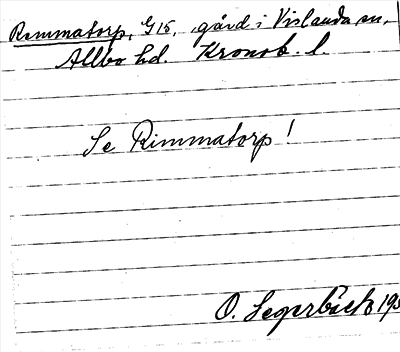 Rommatorp, G15, gård i Vislanda sn,
Allbo hd. Kronob. l.
Se Rimmatorp!
O. Segerbäck 193